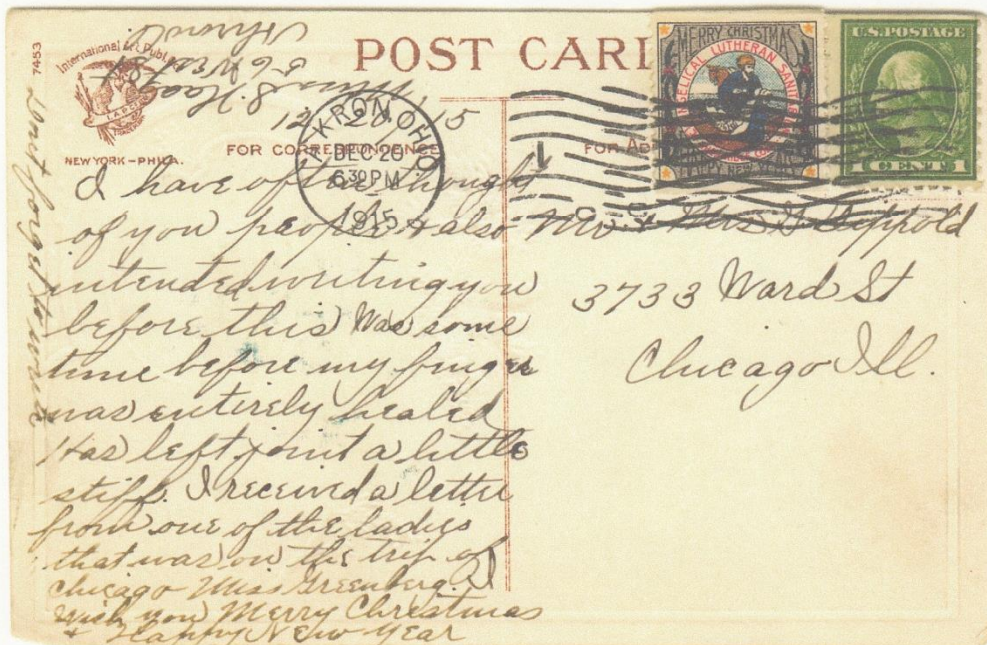 7453
International Art Publ.
NEW YORK – PHILA.
POST CARD
FOR CORRESPONDENCE
FOR AD
MERRY CHRISTMAS
EVANGELICAL LUTHERAN SANITARIUM
HAPPY NEW YEAR
U.S. POSTAGE
1 CENT 1
AKRON, OHIO
DEC 20
630 PM
1915
Akron O.
56 West St
Miss S. Haag
12/20/15
I have often thought
of you people & also
intended writing you
before this Was some
time before my finger
was entirely healed
Has left joint a little
stiff. I received a letter
from one of the ladies
that was on the trip of
Chicago Miss Greenberg. I
wish you Merry Christmas
& Happy New Year
Dont forget to write
Mr. & Mrs. G. Dippold
3733 Ward St
Chicago Ill.